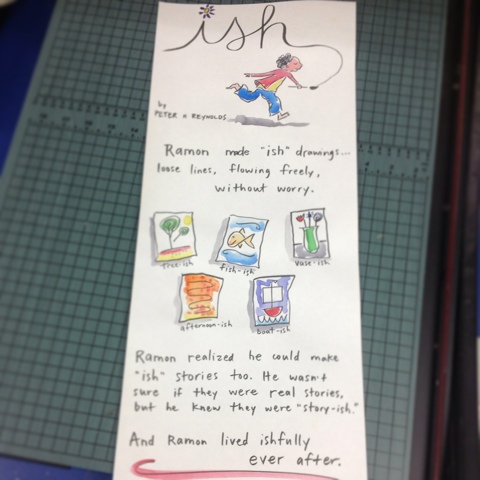 ish
by
PETER H REYNOLDS
Ramon made "ish" drawings...
loose lines, flowing freely,
without worry.
tree-ish
fish-ish
vase-ish
afternoon-ish
boat-ish
Ramon realized he could make
"ish" stories too. He wasn't
sure if they were real stories,
but he knew they were "story-ish."
And Ramon lived ishfully
ever after.